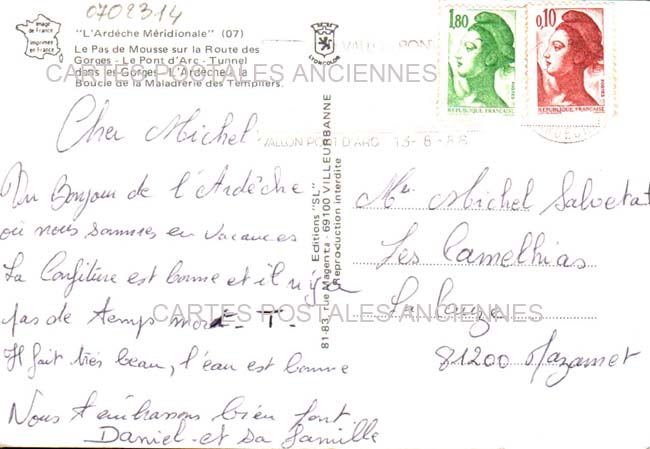 0702314
Image
de France
Imprimée
en France
"L'Ardèche Méridionale" (07)
Le Pas de Mousse sur la Route des
Gorges - Le Pont d'Arc - Tunnel
dans les Gorges - L'Ardèche à la
Boucle de la Maladrerie des Templiers.
LYONCOLOR
VALLON PONT
1,80
REPUBLIQUE FRANÇAISE
POSTES
0,10
REPUBLIQUE FRANÇAISE
POSTES
CARTES POSTALES ANCIENNES
VALLON PONT D'ARC 13-8-88
Cher Michel
Un Bonjour de l'Ardèche
où nous sommes en vacances
La Confiture est bonne et il n'y a
pas de temps mort E.T.
Il fait très beau, l'eau est bonne
Nous t'embrassons bien fort
Daniel et sa famille
Editions "SL"
81-83, rue Magenta - 69100 VILLEURBANNE
Reproduction interdite
Mr Michel Salvetat
Les Camelhias
La
81200 Mazamet
CARTES POSTALES ANCIENNES